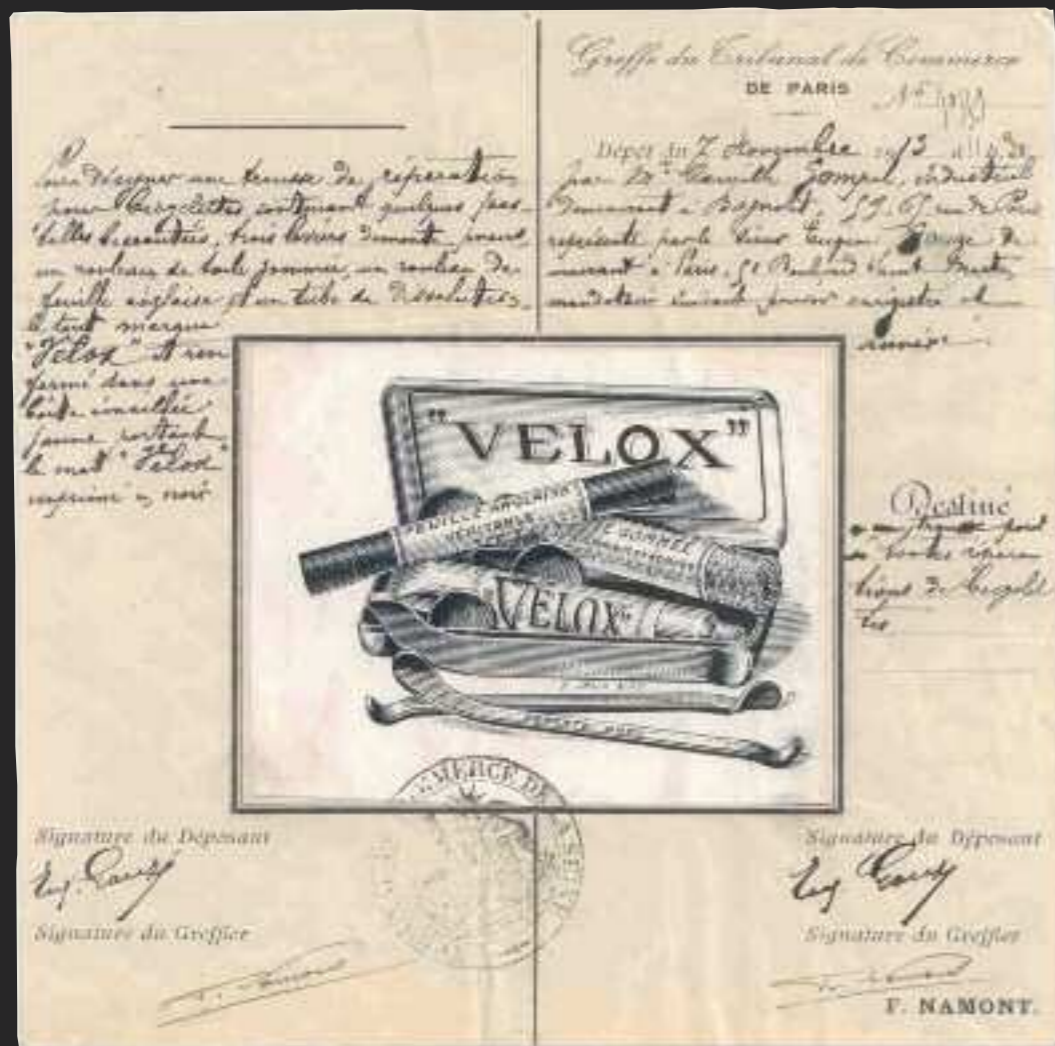 Greffe du Tribunal de Commerce
DE PARIS
Nº
Dépôt du 7 Novembre 1913 à
par Mr Camille Gompel, industriel
demeurant à Bagnolet, rue de Paris
représenté par le sieur Eugène de
meurant à Paris, 51 Boulevard Saint Martin,
mandataire suivant pouvoir enregistré et
annexé
Pour désigner une trousse de réparation
pour bicyclettes contenant quelques pas-
tilles biseautées, trois leviers démonte pneus,
un rouleau de toile gommée, un rouleau de
feuille anglaise et un tube de dissolution,
le tout marqué
"Velox" et ren
fermé dans une
boîte émaillée
jaune portant
le mot "Velox"
imprimé en noir
"VELOX"
FEUILLE ANGLAISE
VÉRITABLE
GOMMÉE
"VELOX"
Destiné
pour
toutes répara
tions de bicyclet
tes
COMMERCE DE LA SEINE
Signature du Déposant
Eug.
Signature du Greffier
Signature du Déposant
Eug
Signature du Greffier
F. NAMONT.